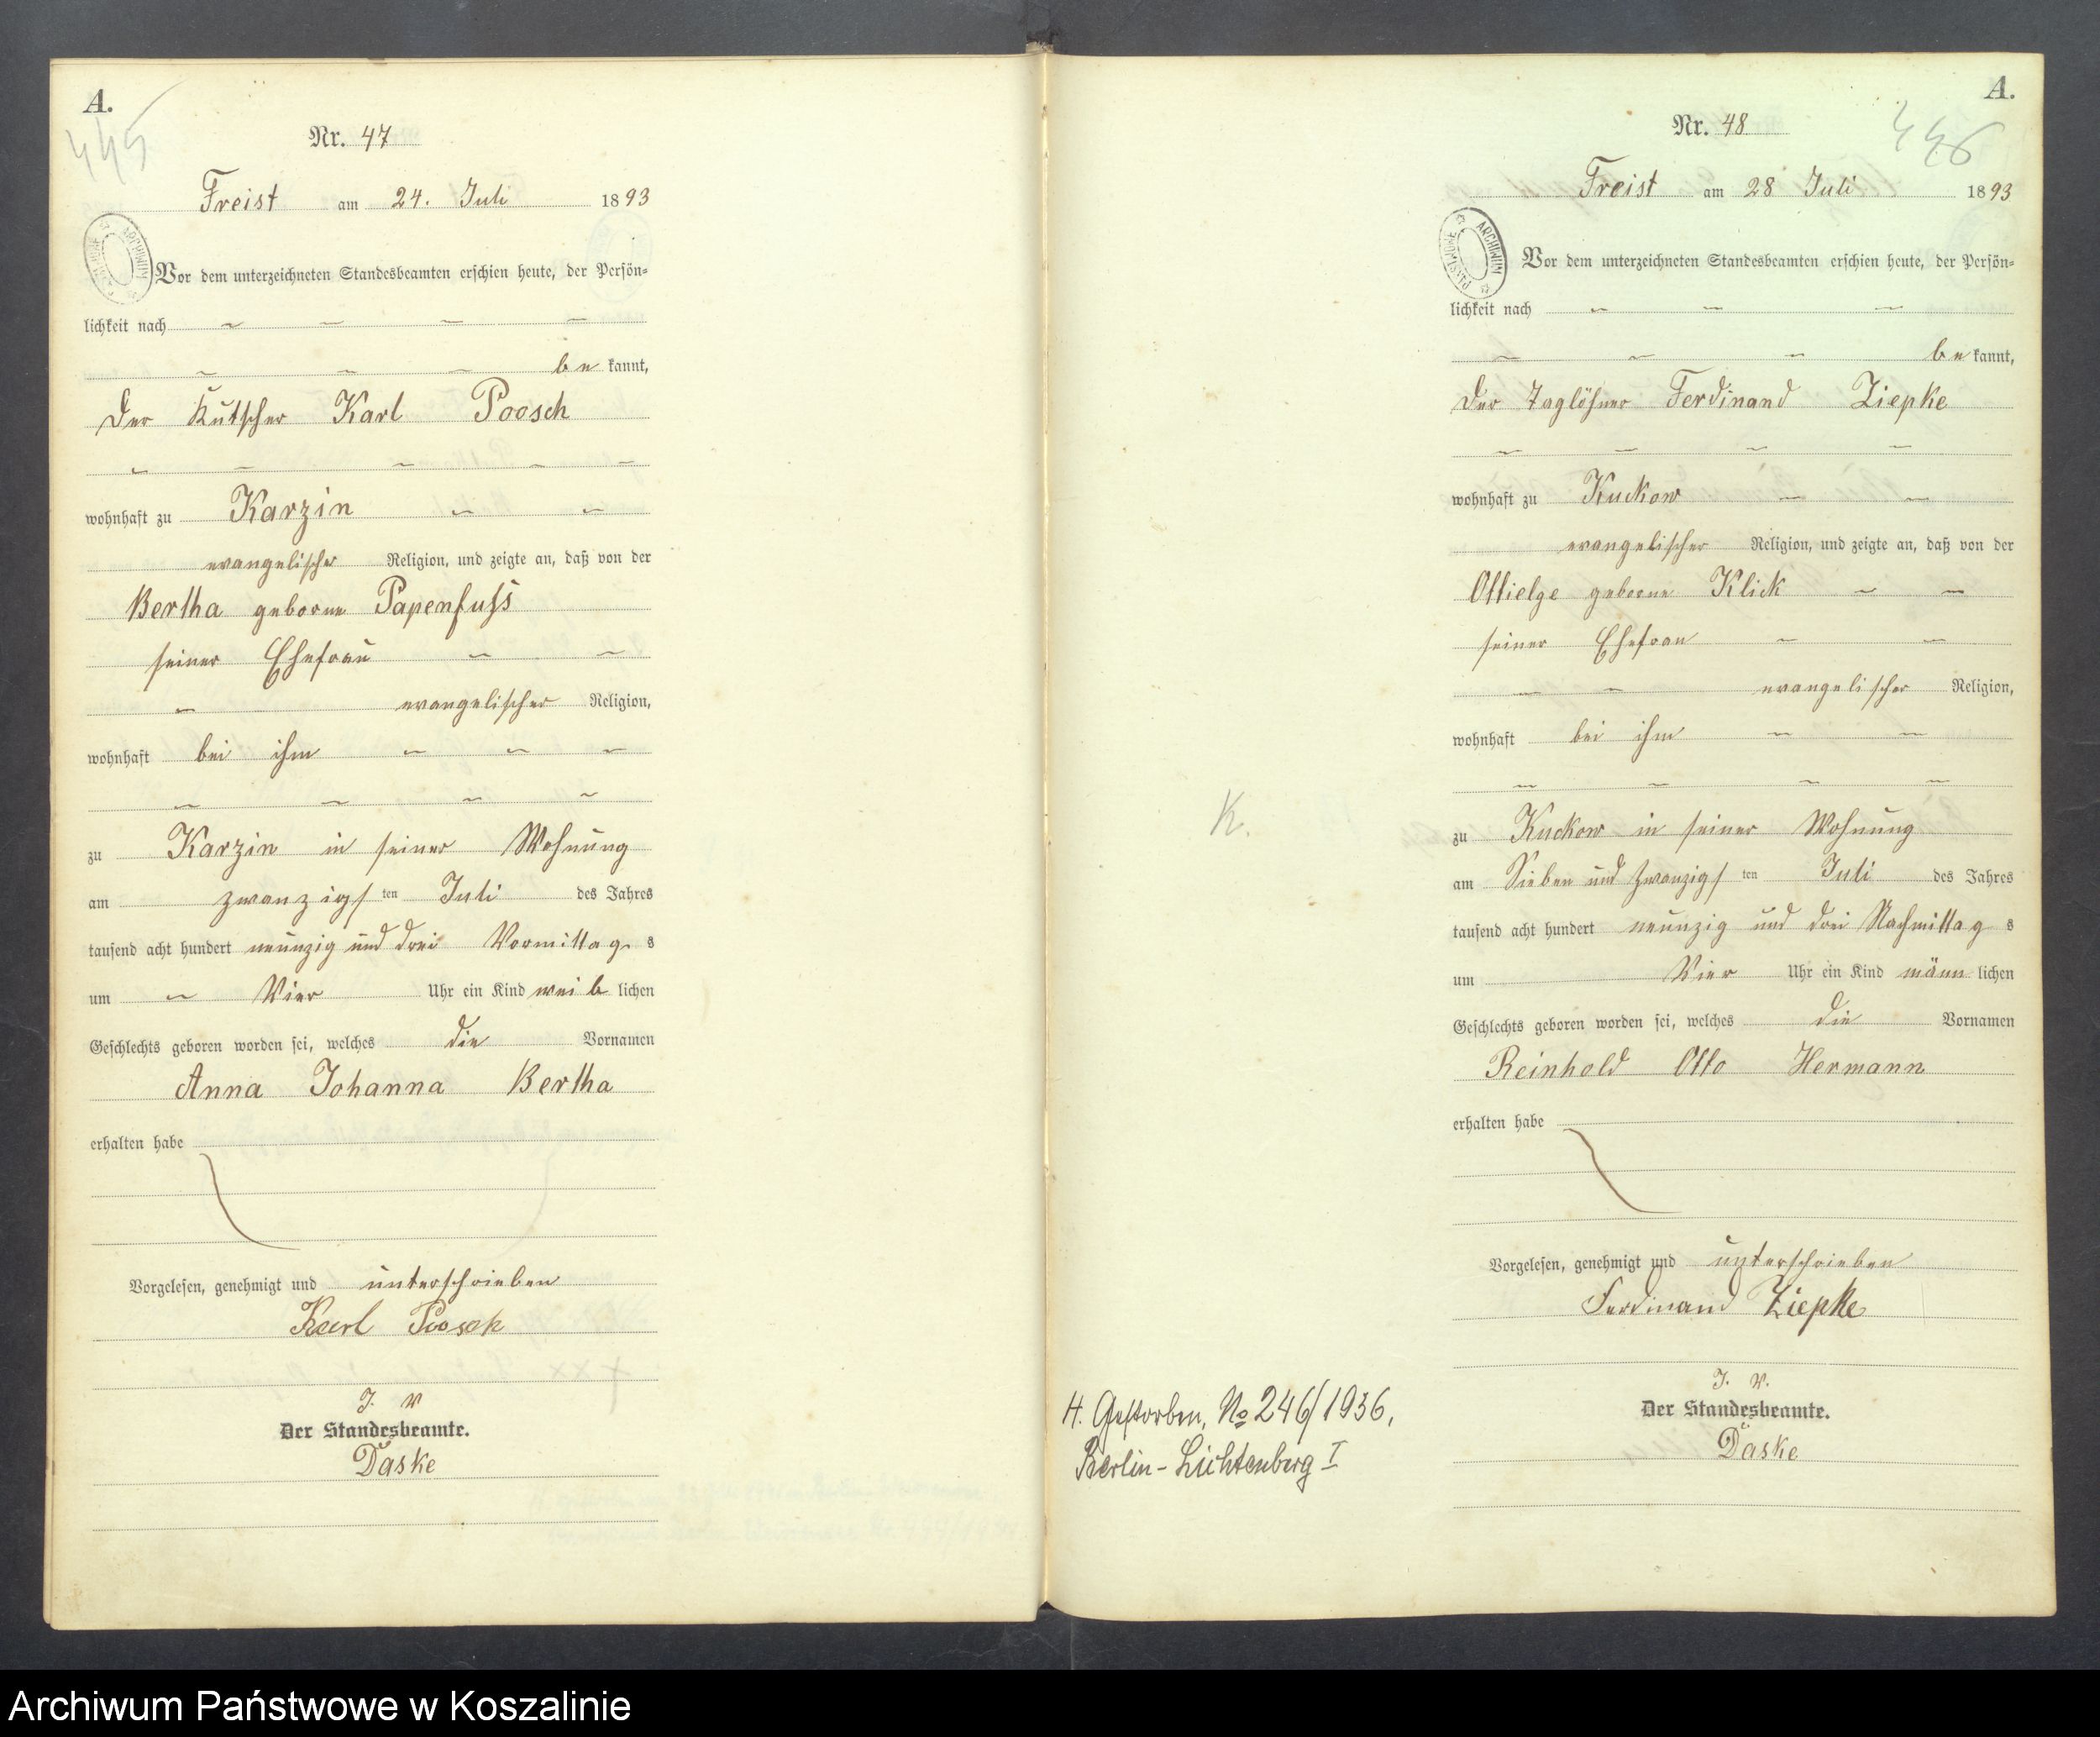 A.
445
Nr. 47
Freist am 24. Juli 1893
Vor dem unterzeichneten Standesbeamten erschien heute, der Persön=
lichkeit nach
bekannt,
der Kutscher Karl Poosch
wohnhaft zu Karzin
evangelischer Religion, und zeigte an, daß von der
Bertha geborne Papenfuss
seiner Ehefrau
evangelischer Religion,
wohnhaft bei ihm
zu Karzin in seiner Wohnung
am zwanzigsten Juli des Jahres
tausend acht hundert neunzig und drei Vormittags
um Vier Uhr ein Kind weiblichen
Geschlechts geboren worden sei, welches die Vornamen
Anna Johanna Bertha
erhalten habe
Vorgelesen, genehmigt und unterschrieben
Karl Poosch
J. V.
Der Standesbeamte.
Daske
A.
446
Nr. 48
Freist am 28 Juli 1893
ARCHIWUM
Vor dem unterzeichneten Standesbeamten erschien heute, der Persön=
lichkeit nach
bekannt,
der Taglöhner Ferdinand Ziepke
wohnhaft zu Kuckow
evangelischer Religion, und zeigte an, daß von der
Ottielge geborne Klick
seiner Ehefrau
evangelischer Religion,
wohnhaft bei ihm
zu Kuckow in seiner Wohnung
am Sieben und zwanzigsten Juli des Jahres
tausend acht hundert neunzig und drei Nachmittags
um Vier Uhr ein Kind männlichen
Geschlechts geboren worden sei, welches die Vornamen
Reinhold Otto Hermann
erhalten habe
Vorgelesen, genehmigt und unterschrieben
Ferdinand Ziepke
J. V.
Der Standesbeamte.
Daske
K.
H. Gestorben, No 246/1936,
Berlin-Lichtenberg I
Archiwum Państwowe w Koszalinie